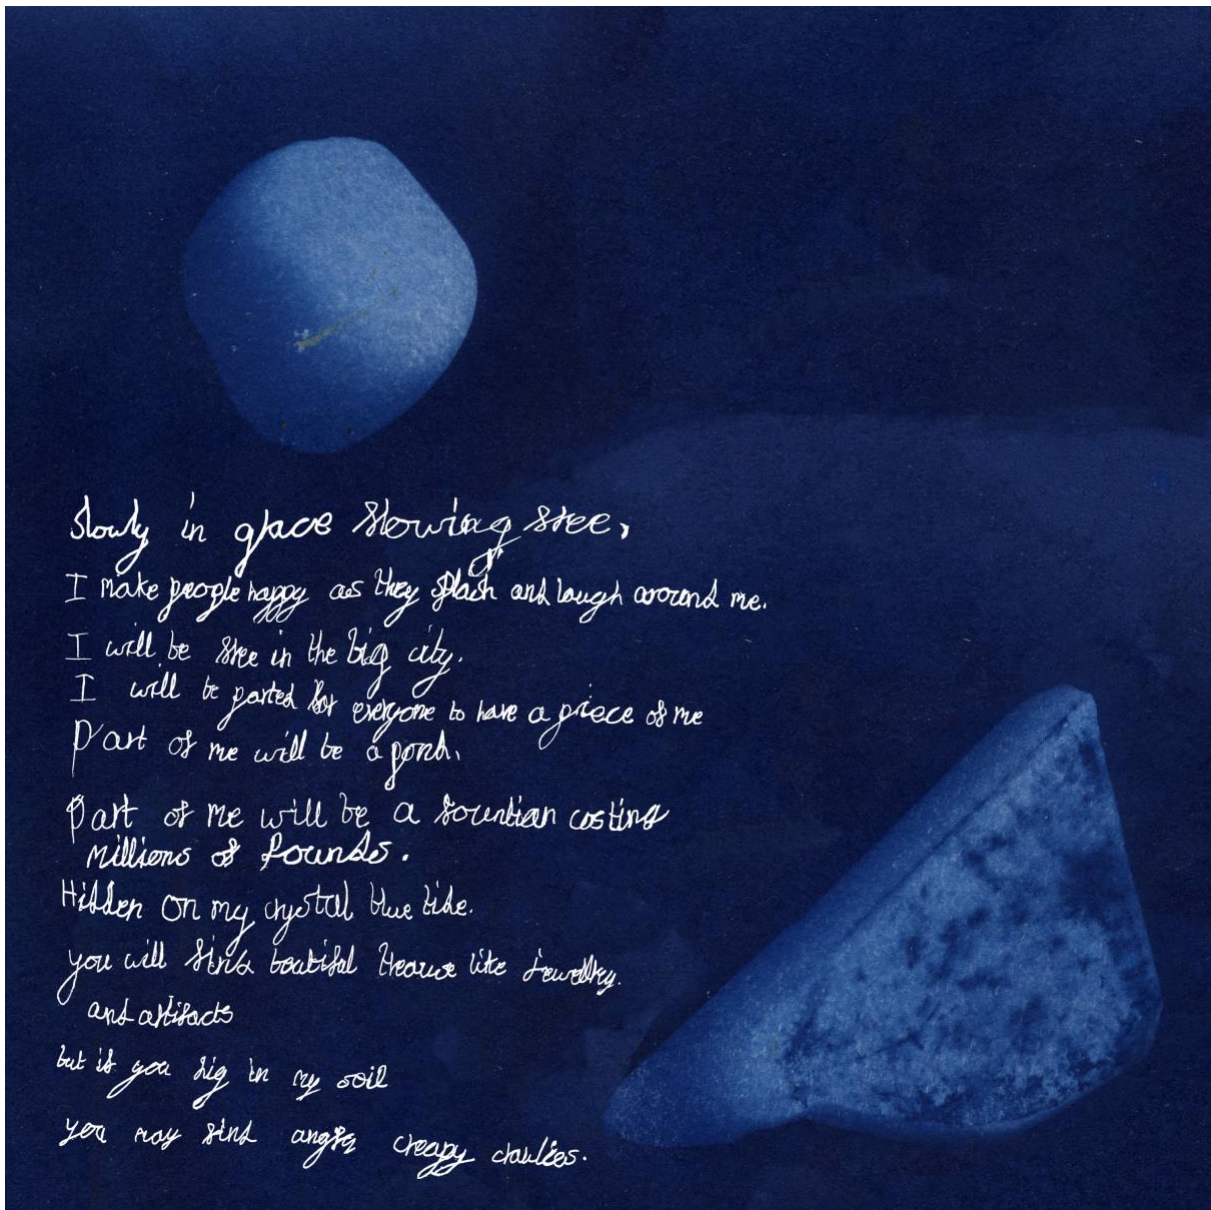 Slowly in grace flowing free,
I make people happy as they splash and laugh around me.
I will be free in the big city.
I will be parted for everyone to have a piece of me
Part of me will be a pond.
Part of me will be a fountian costing
Millions of Pounds.
Hidden on my crystal blue tide.
you will find beatiful like jewellry.
and artifacts
but if you dig in my soil
you may find angry creapy craulies.